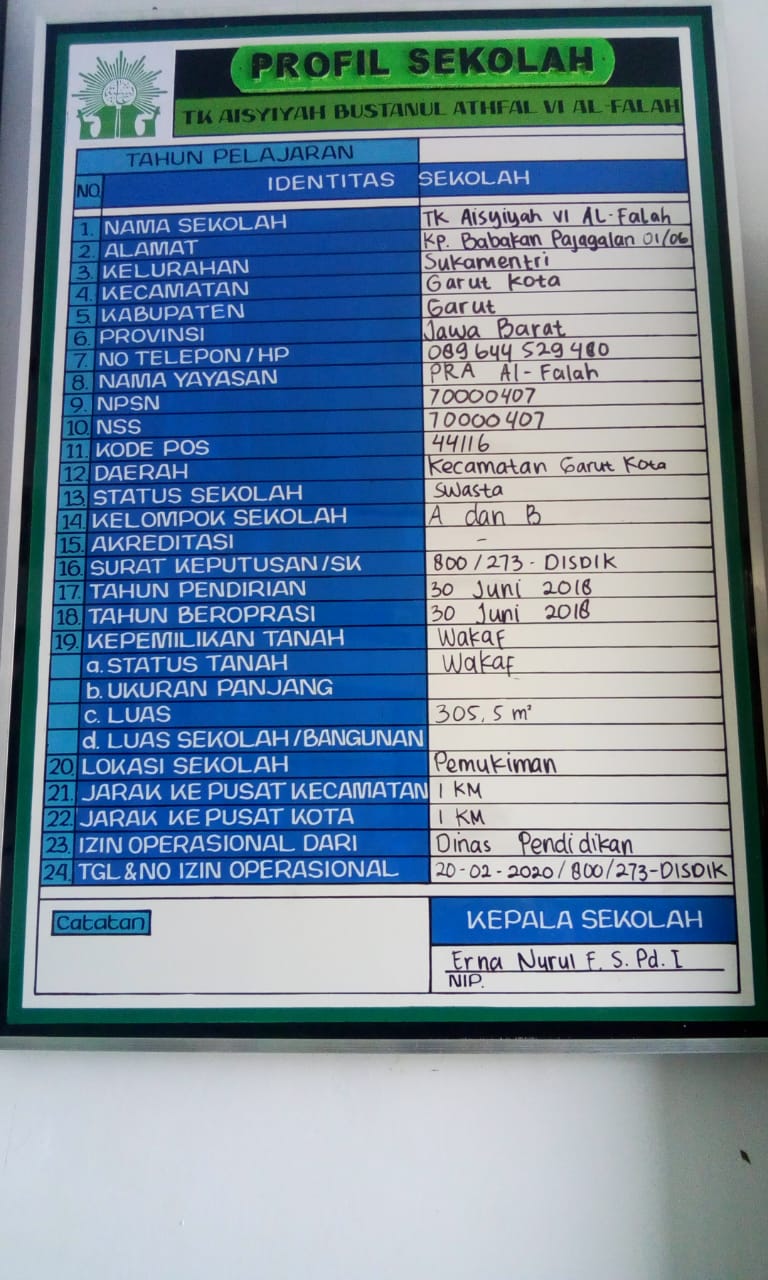 PROFIL SEKOLAH
TK AISYIYAH BUSTANUL ATHFAL VI AL-FALAH
TAHUN PELAJARAN
NO. IDENTITAS SEKOLAH
1. NAMA SEKOLAH TK Aisyiyah VI AL-Falah
2. ALAMAT Kp. Babakan Pajagalan 01/06
3. KELURAHAN Sukamentri
4. KECAMATAN Garut Kota
5. KABUPATEN Garut
6. PROVINSI Jawa Barat
7. NO TELEPON/HP 089 644 529 480
8. NAMA YAYASAN PRA Al-Falah
9. NPSN 70000407
10. NSS 70000407
11. KODE POS 44116
12. DAERAH Kecamatan Garut Kota
13. STATUS SEKOLAH Swasta
14. KELOMPOK SEKOLAH A dan B
15. AKREDITASI -
16. SURAT KEPUTUSAN/SK 800/273-DISDIK
17. TAHUN PENDIRIAN 30 Juni 2018
18. TAHUN BEROPRASI 30 Juni 2018
19. KEPEMILIKAN TANAH Wakaf
a. STATUS TANAH Wakaf
b. UKURAN PANJANG
c. LUAS 305,5 m²
d. LUAS SEKOLAH/BANGUNAN
20. LOKASI SEKOLAH Pemukiman
21. JARAK KE PUSAT KECAMATAN 1 KM
22. JARAK KE PUSAT KOTA 1 KM
23. IZIN OPERASIONAL DARI Dinas Pendidikan
24. TGL & NO IZIN OPERASIONAL 20-02-2020/800/273-DISDIK
Catatan
KEPALA SEKOLAH
Erna Nurul F. S.Pd.I
NIP.